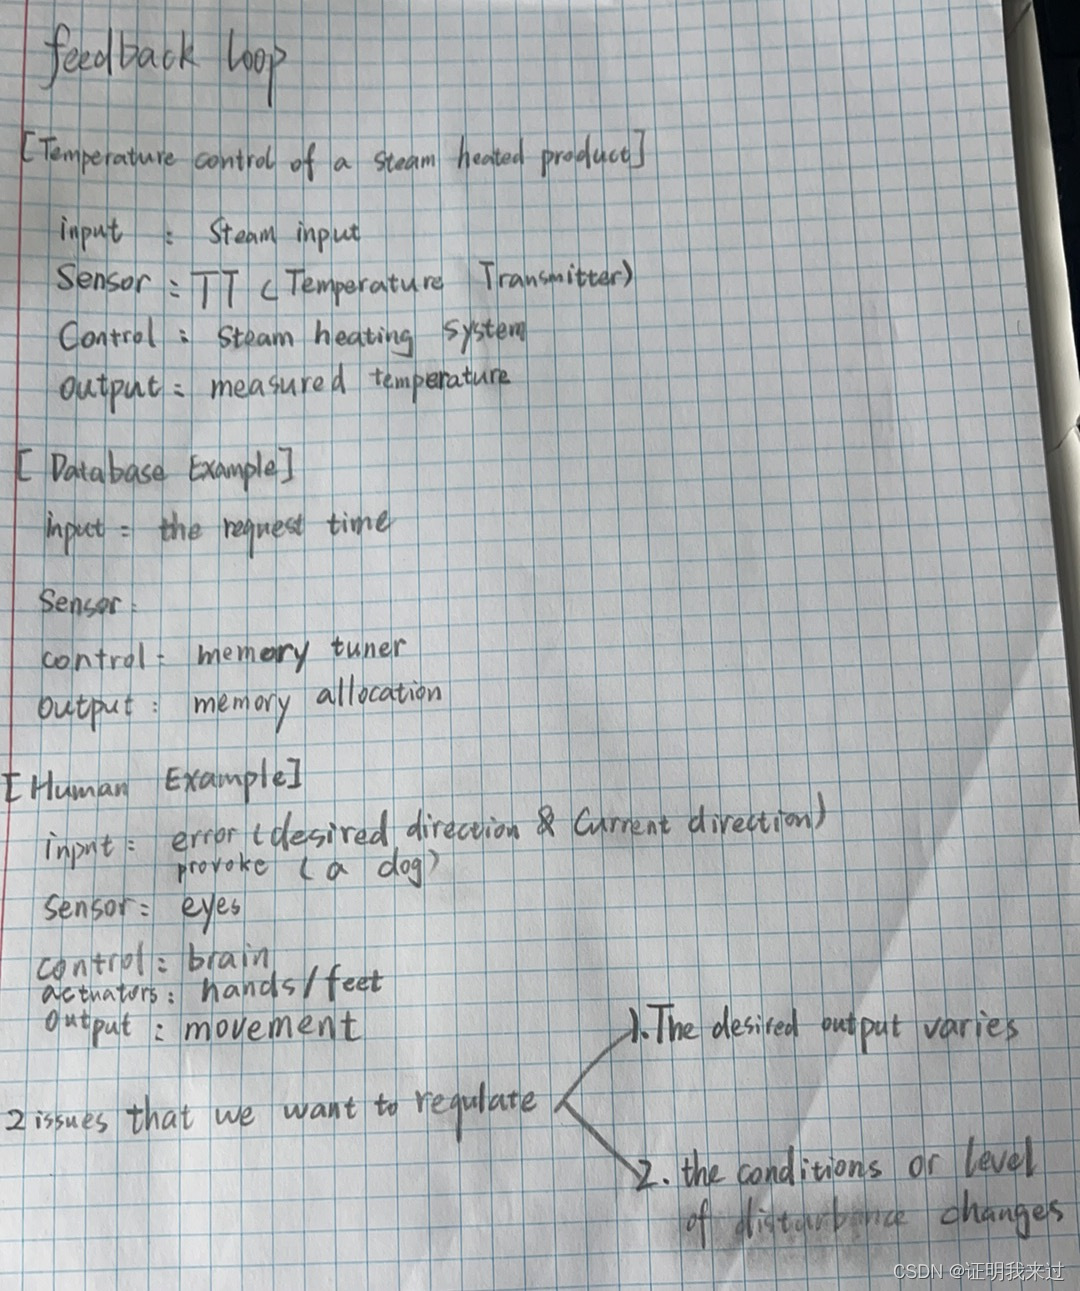 feedback loop
[Temperature control of a steam heated product]
input : Steam input
Sensor : TT (Temperature Transmitter)
Control : Steam heating system
output : measured temperature
[Database Example]
input : the request time
Sensor :
control : memory tuner
output : memory allocation
[Human Example]
input : error (desired direction & Current direction)
provoke (a dog)
sensor : eyes
control : brain
actuators : hands/feet
output : movement
1. The desired output varies
2 issues that we want to regulate
2. the conditions or level
of disturbance changes
CSDN @证明我来过